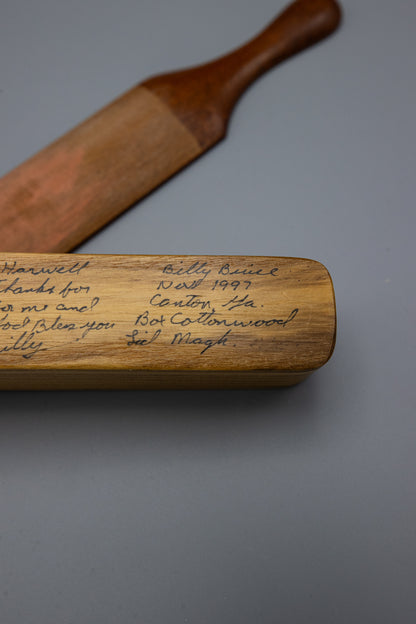 Harwell
Thanks for
for me and
God Bless you
Billy
Billy Buice
Nov 1997
Canton, Ga.
Box Cottonwood
Lid Magh.